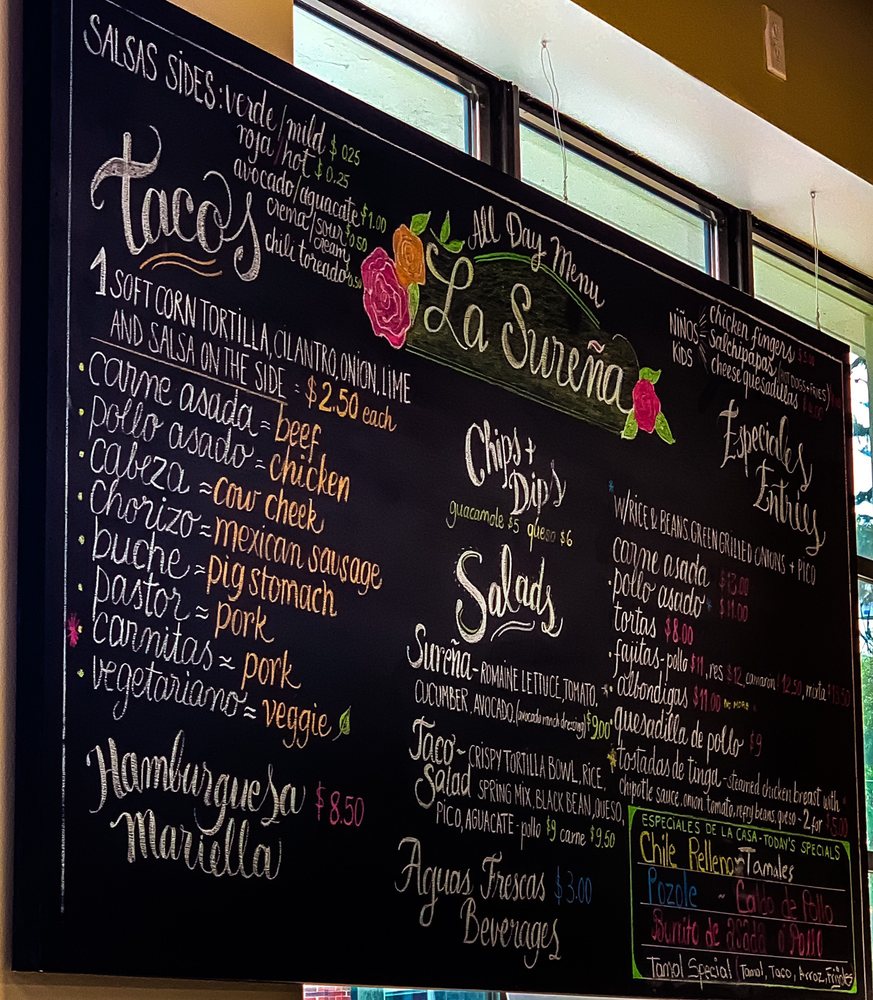 SALSAS SIDES: verde/mild $ 025
roja/hot $ 0.25
avocado/aguacate $1.00
crema/sour cream $0.50
chili toreado
Tacos
1 SOFT CORN TORTILLA, CILANTRO, ONION, LIME
AND SALSA ON THE SIDE = $2.50 each
carne asada = beef
pollo asado = chicken
cabeza = cow cheek
chorizo = mexican sausage
buche = pig stomach
pastor = pork
carnitas = pork
vegetariano = veggie
Hamburguesa $8.50
Mariella
All Day Menu
La Sureña
Chips +
Dips
guacamole $5 queso $6
Salads
Sureña - ROMAINE LETTUCE, TOMATO,
CUCUMBER, AVOCADO, (avocado ranch dressing) $9.00
Taco - CRISPY TORTILLA BOWL, RICE,
Salad SPRING MIX, BLACK BEAN, QUESO,
PICO, AGUACATE - pollo $9 carne $9.50
Aguas Frescas $3.00
Beverages
NIÑOS KIDS
chicken fingers
Salchipapas (HOT DOGS + FRIES)
cheese quesadillas
Especiales
Entrees
W/RICE & BEANS GREEN GRILLED ONIONS + PICO
carne asada $13.00
pollo asado $11.00
tortas $8.00
fajitas - pollo $11, res $12, camaron $12.50, mixta
albondigas $11.00 NO MORE
quesadilla de pollo $9
tostadas de tinga - steamed chicken breast with
chipotle sauce, onion, tomato, refry beans, queso - 2 for $5.00
ESPECIALES DE LA CASA - TODAY'S SPECIALS
Chile Relleno - Tamales
Pozole ~ Caldo de Pollo
Burrito de asada o Pollo
Tamal Special (Tamal, Taco, Arroz, Frijoles